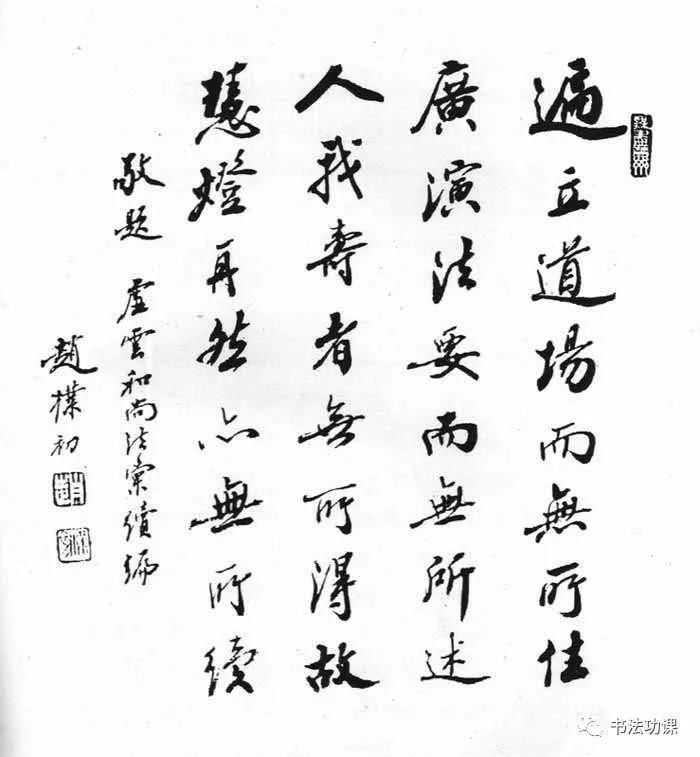 遍立道場而無所住
廣演法要而無所述
人我壽者無所得故
慧燈再然亦無所續
敬題 虛雲和尚法彙續編
趙樸初
书法功课